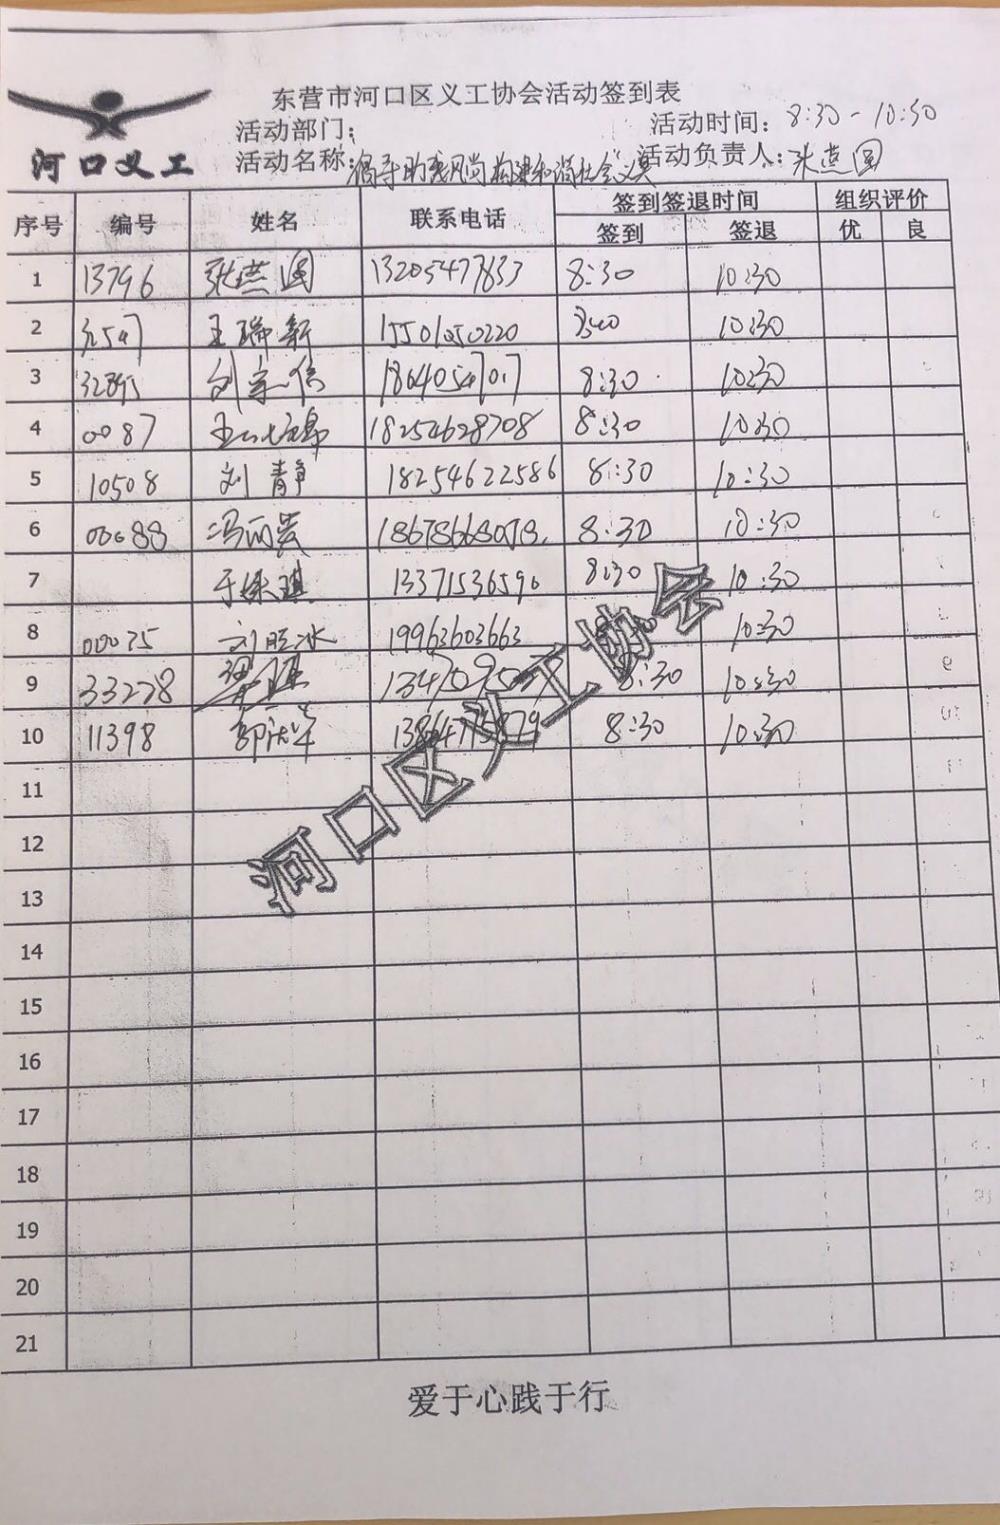 东营市河口区义工协会活动签到表
河口义工
活动部门: 活动时间: 8:30-10:30
活动名称: 倡导助残风尚构建和谐社会 活动负责人: 张燕图
序号 编号 姓名 联系电话 签到签退时间 组织评价
签到 签退 优 良
1 13796 张燕图 13205477633 8:30 10:30
2 王瑞新 15501250220 10:30
3 刘宗信 8:30 10:30
4 0087 18254628708 8:30 10:30
5 10508 刘静 18254622586 8:30 10:30
6 00088 冯丽贵 8:30 10:30
7 13371536590 8:30 10:30
8 00075 19963603663 10:30
9 33278 8:30 10:30
10 11398 8:30 10:30
11
12
13
14
15
16
17
18
19
20
21
河口区义工协会
爱于心践于行